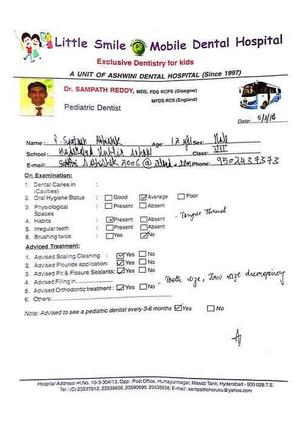 Little Smile Mobile Dental Hospital
Exclusive Dentistry for kids
A UNIT OF ASHWINI DENTAL HOSPITAL (Since 1997)
Dr. SAMPATH REDDY, MDS, PGS RCPS (Glasgow)
MFDS RCS (England)
Pediatric Dentist
Date:
Name: Age: 12 Sex: Male
School:
E-mail: Phone:
On Examination:
1. Dental Caries in (Cavities)
2. Oral Hygiene Status : Good Average Poor
3. Physiological Spaces : Present Absent
4. Habits : Present Absent - Tongue Thrust
5. Irregular teeth : Present Absent
6. Brushing twice : Yes No
Adviced Treatment:
1. Advised Scaling Cleaning : Yes No
2. Advised Flouride application: Yes No
3. Advised Pit & Fissure Sealants: Yes No
4. Advised Filling in
5. Advised Orthodontic treatment : Yes No - Tooth size, Jaw size discrepancy
6. Others:
Note: Advised to see a pediatric dentist every 3-6 months Yes No
Hospital Address: H.No. 10-3-304/13, Opp: Post Office, Humayunnagar, Masab Tank, Hyderabad - 500 028 T.S.